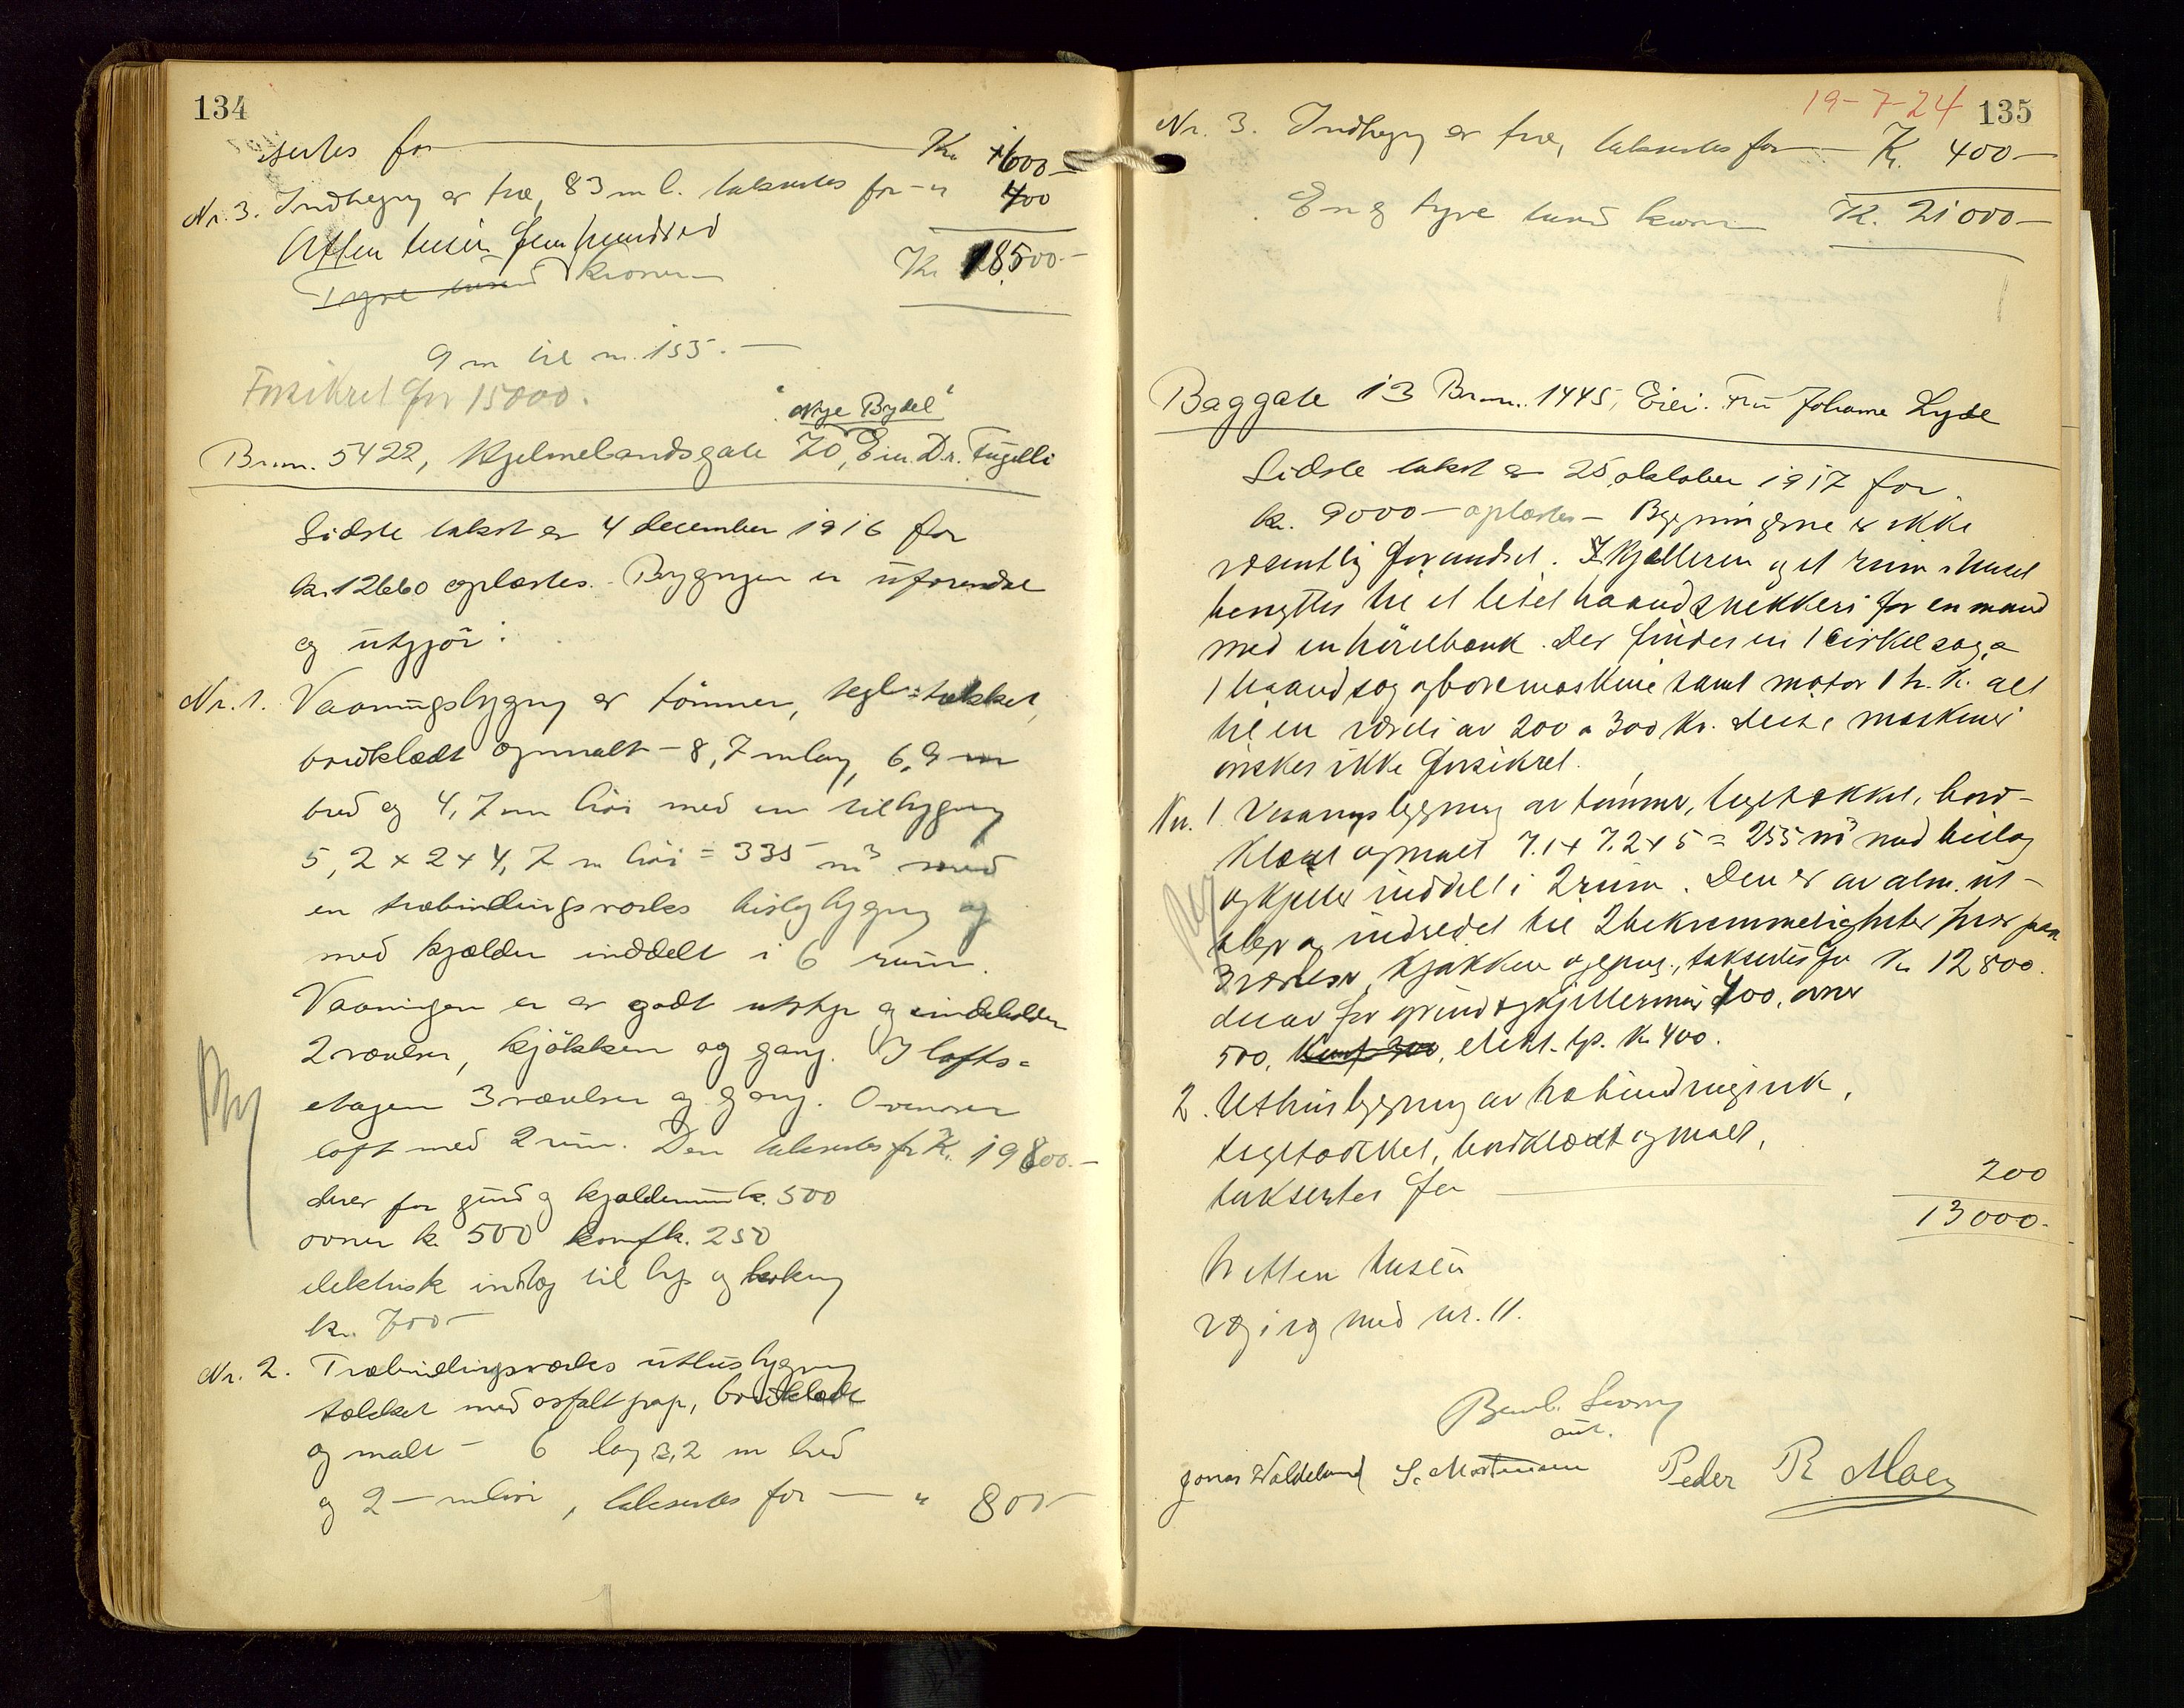 134
sertes for Kr. 1600-
Nr. 3. Indhegng av træ, 83 m l. takseres for - " 400
Atten tusen fem hundred
Tyve tusend kroner Kr 18500.-
9 m til nr. 135.-
Forsikret for 15000.
"Nye Bydel"
Br.nr. 5422, Hjelmelandsgate 70, Eier Dr. Fugelli
Sidste takst av 4 december 1916 for
kr. 12660 oplæstes. Bygngen er uforandret
og utgjør:
Nr. 1. Vaaningsbygng av tømmer, teglstækket,
bordklædt og malt - 8,7 m lang, 6,9 m
bred og 4,7 m høi med en tilbygng
5,2 x 2 x 4,7 m høi = 335 m³ med
en træbindingsverks bislagbygng og
med kjælder inddelt i 6 rum.
Vaaningen er av godt utstyr og indeholder
2 værelser, kjøkken og gang. I lofts=
etagen 3 værelser og gang. Ovenover
loft med 2 rum. Den takseres for K. 19800.-
derav for grund og kjældermur k. 500
ovner k. 500 komf k. 250
elektrisk indlæg til lys og kokng
kr. 700-
Nr. 2. Træbindingsverks uthusbygng
tækket med asfaltpap, bordklædt
og malt - 6 lang 3,2 m bred
og 2 - m høi, takseres for - " 800-
19-7-24 135
Nr. 3. Indhegng av træ, takseres for - K. 400-
En og tyve tusend kroner K. 21000-
Baggate 13 Br.nr. 1445, Eier. Fru Johanne Lyde
Sidste takst av 25 oktober 1917 for
kr. 9000- oplæstes - Bygningerne er ikke
væsentlig forandret. I kjælleren og et rum i huset
benyttes til et litet haandsnekkeri for en mand
med en høvelbænk. Der findes en 1 cirkelsag,
1 baandsag og boremaskine samt motor 1 h.K. alt
til en værdi av 200 a 300 Kr. disse maskiner
ønskes ikke forsikret.
Nr. 1 Vaaningsbygning av tømmer, tegltækket, bord-
klædt og malt 7.1 x 7.2 x 5 = 255 m³ med bislag
og kjeller inddelt i 2 rum. Den er av alm. ut-
styr og indredet til 2 bekvemmeligheter hver paa
3 værelser, kjøkken og gang, takseres for Kr 12800.
derav for grund og kjellermur 400, ovner
500, komf 300, elekt. lys. Kr 400.
2. Uthusbygning av træbindingsverk,
tegltækket, bordklædt og malt,
takseres for 200
13000.
Tretten tusen
væg i væg med nr. 11.
aut.
Jonas Waldeland S. Mortensen Peder R. Moen